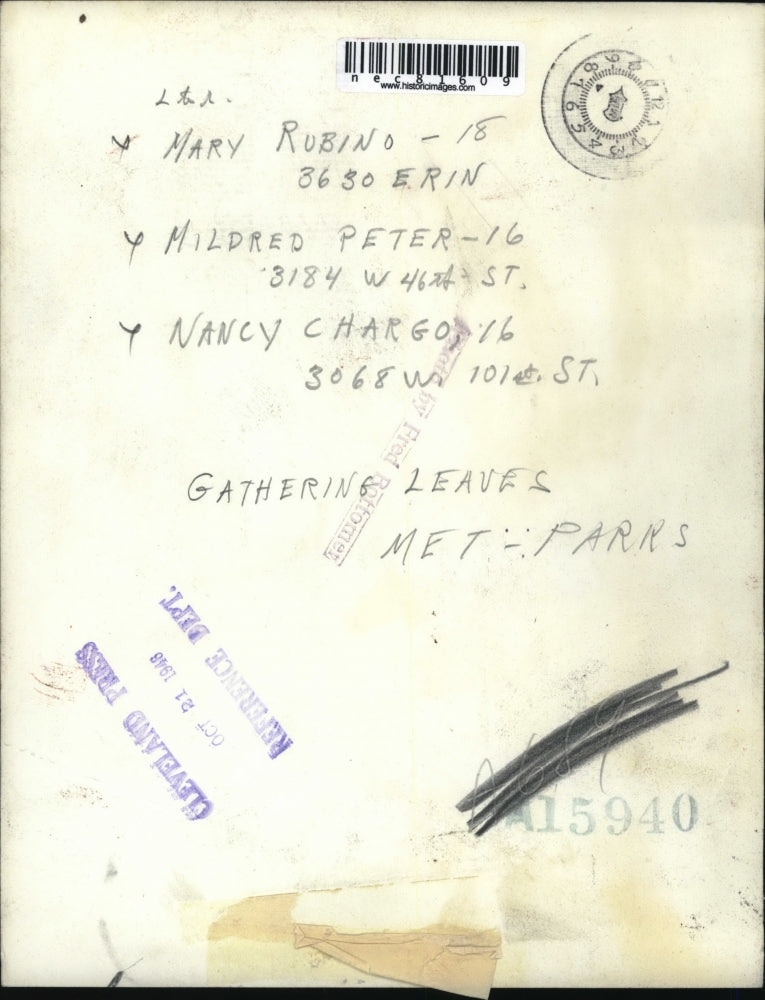 nec81609
www.historicimages.com
L to R.
MARY RUBINO - 18
3630 ERIN
MILDRED PETER - 16
3184 W 46th ST.
NANCY CHARGO, 16
3068 W. 101st. ST.
by Fred Bottomer
GATHERING LEAVES
MET - PARKS
CLEVELAND PRESS
OCT 21 1948
REFERENCE DEPT.
A15940